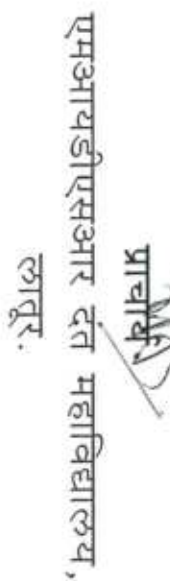 प्राचार्य
एमआयडीएसआर दंत महाविद्यालय,
लातूर.